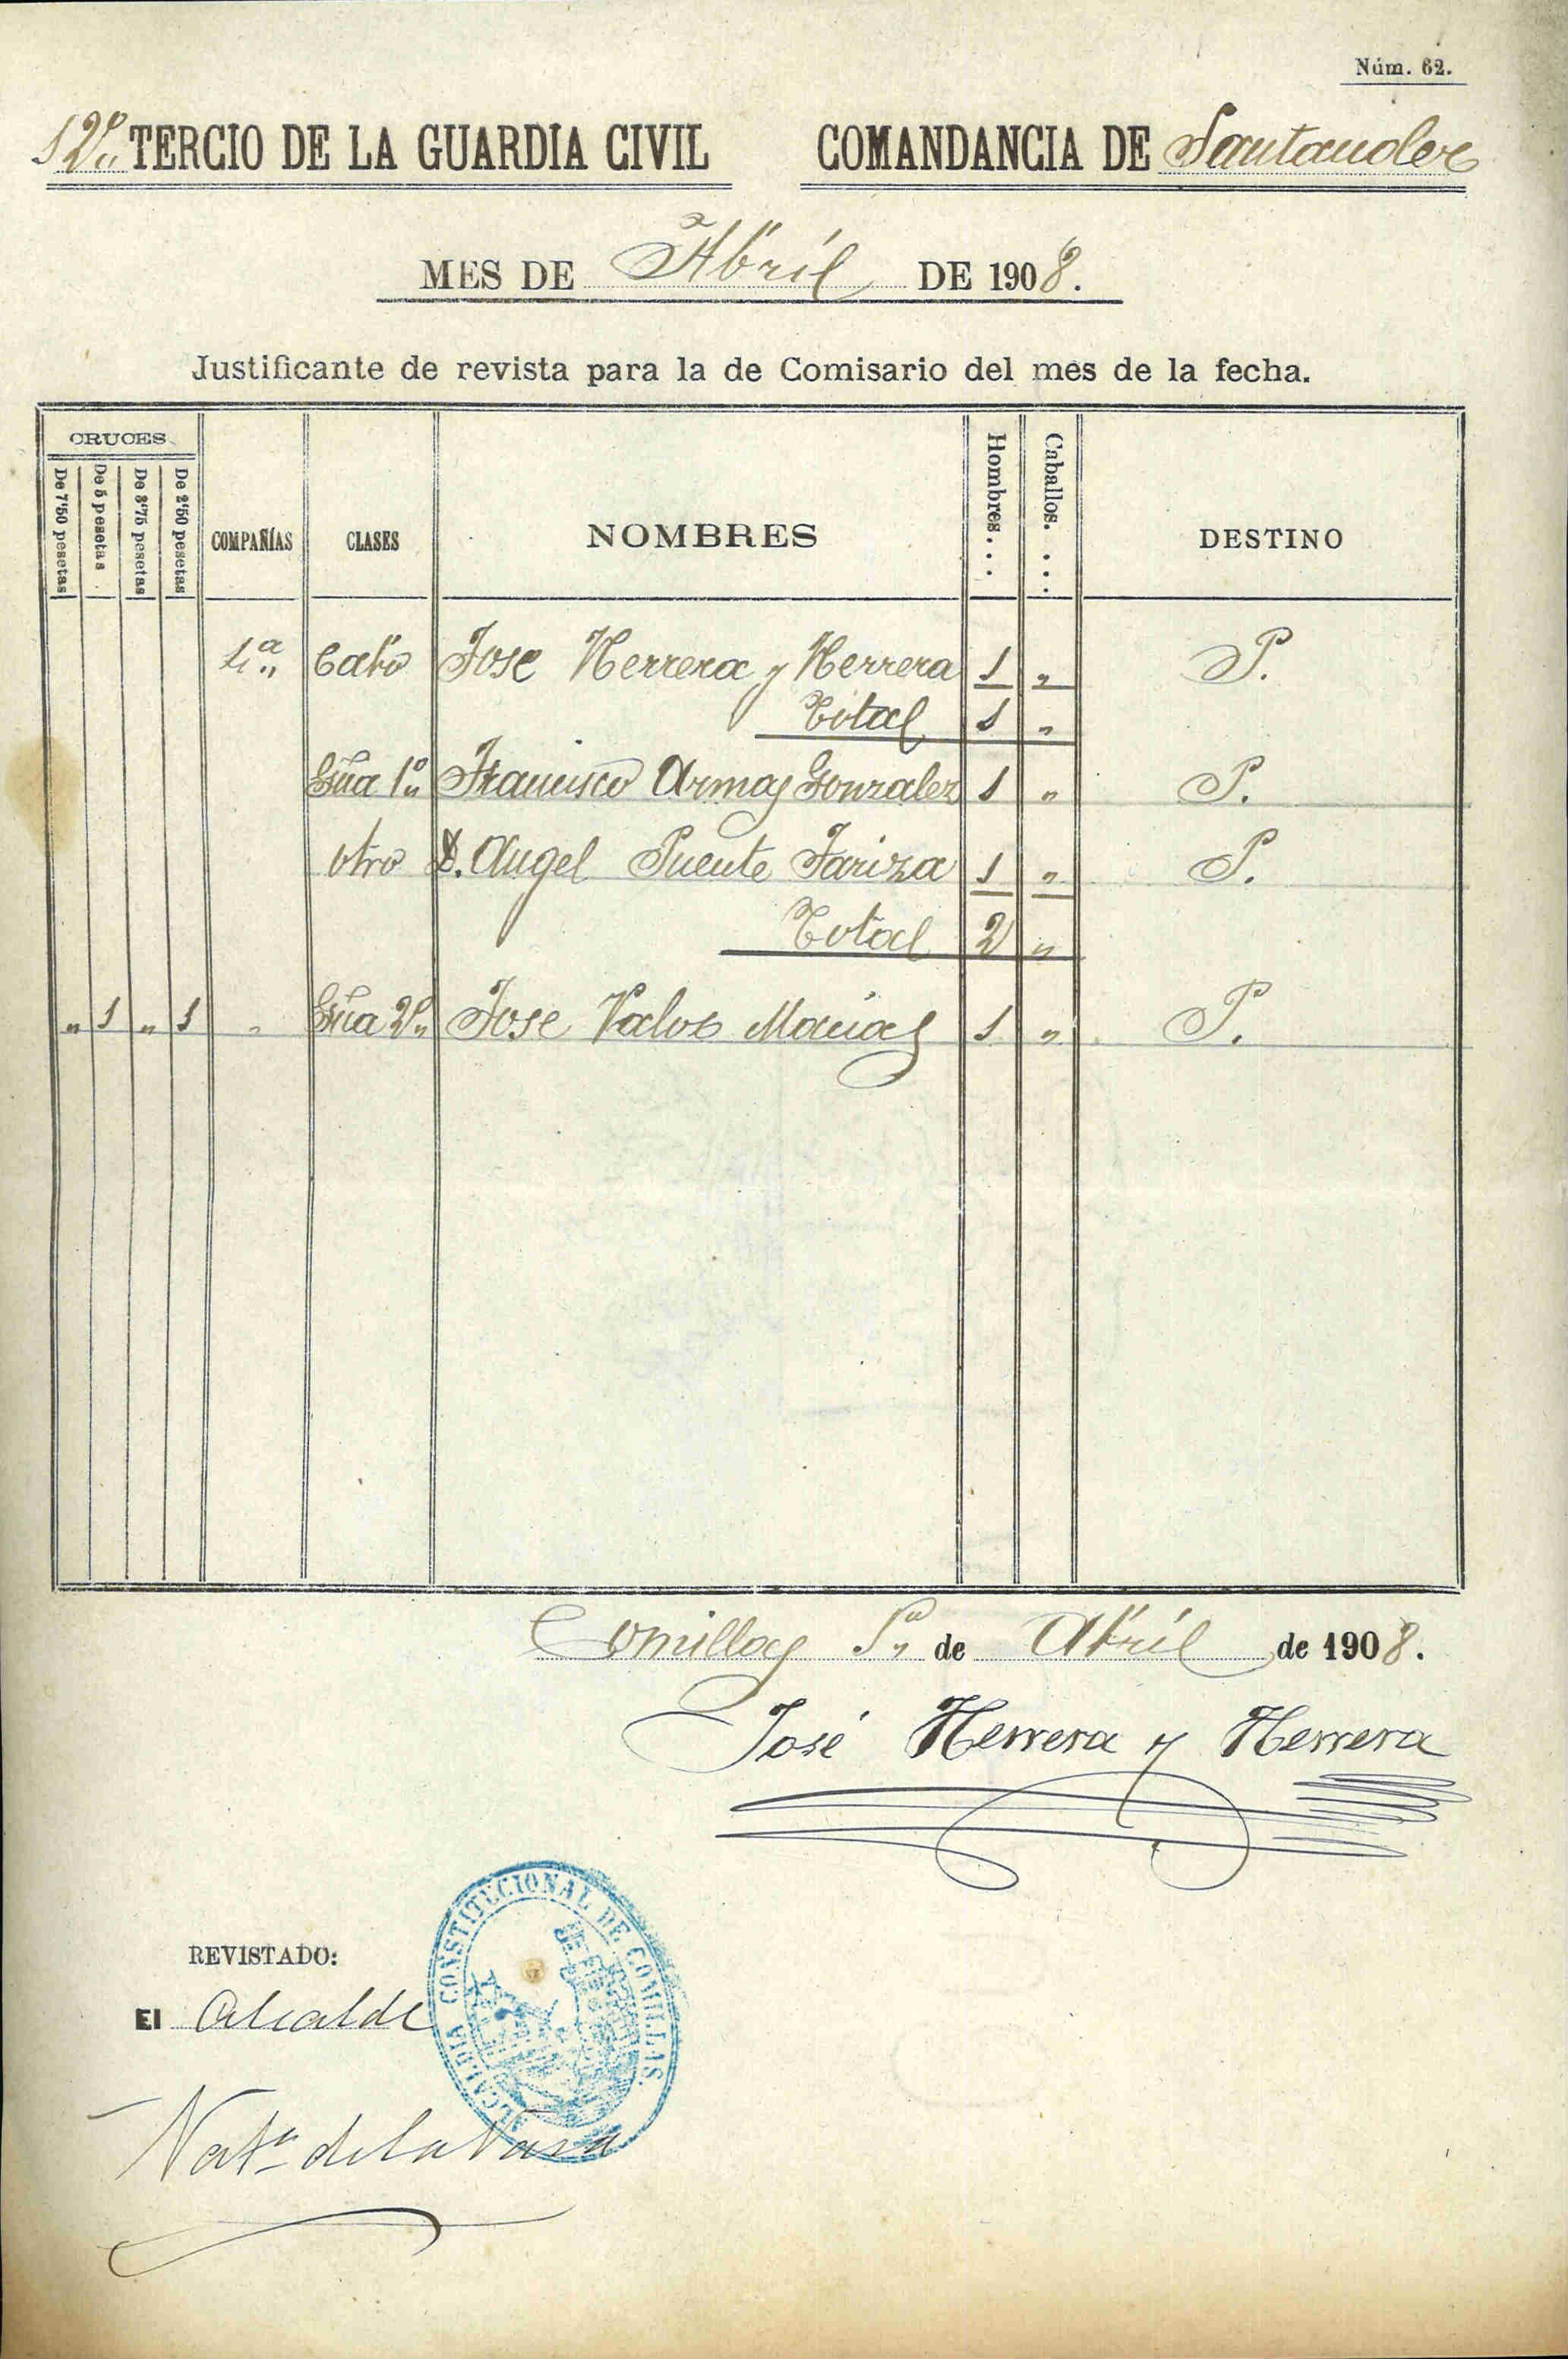 Núm. 62.
12º TERCIO DE LA GUARDIA CIVIL COMANDANCIA DE Santander
MES DE Abril DE 1908.
Justificante de revista para la de Comisario del mes de la fecha.
CRUCES
De 7'50 pesetas De 5 pesetas De 3'75 pesetas De 2'50 pesetas COMPAÑÍAS CLASES NOMBRES Hombres... Caballos.... DESTINO
1ª Cabo Jose Herrera y Herrera 1 " P.
Total 1 "
Gua 1º Francisco Armas Gonzalez 1 " P.
Otro D. Angel Puente Fariza 1 " P.
Total 2 "
" 1 " 1 " Gua 2º Jose Valos Macias 1 " P.
Comillas 1º de Abril de 1908.
José Herrera y Herrera
REVISTADO:
El Alcalde
ALCALDIA CONSTITUCIONAL DE COMILLAS.
de la